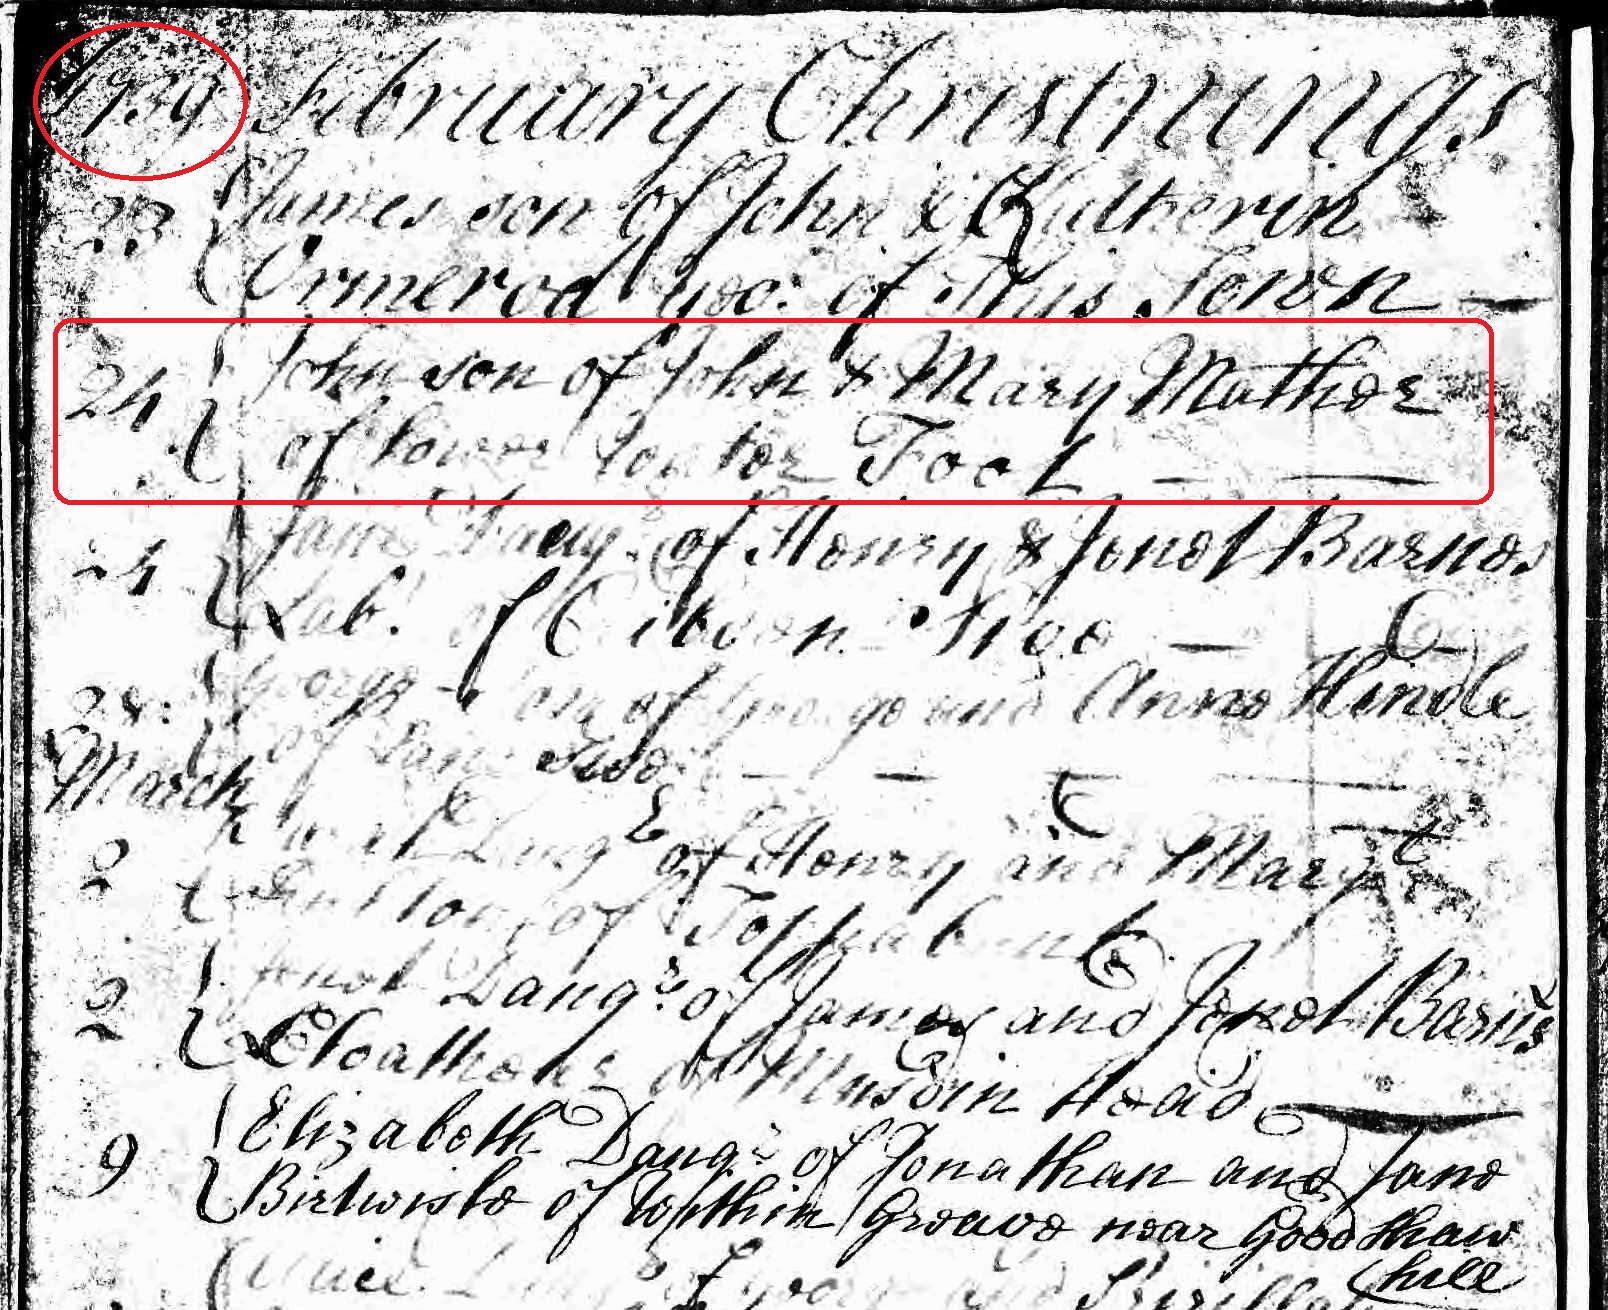 1739 February Christnings
23 James son of John & Katherin
Ormerod of This Town
24 John son of John & Mary Mather
of Lower Foot
24 Jane Daugr of Henry & Jenet Barnes
Lab. of
28: George son of George and Anne Hindle
of
March
2 Daugr of Henry and Mary
of
2 Jenet Daugr of James and Jenet Barns
of Musdin Head
9 Elizabeth Daugr of Jonathan and Jane
Birtwisle of Within Greave near Goodshaw
hill
Alice